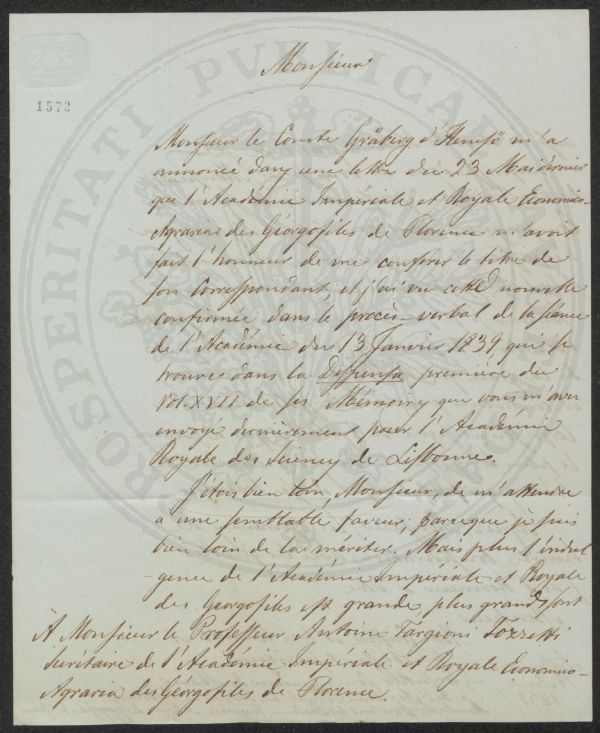 Monsieur
1572
Monsieur le Comte Gråberg d'Hemsö m'a
annoncé dans une lettre du 23 Mai dernier
que l'Académie Impériale et Royale Economico-
Agraria des Géorgofiles de Florence m'avoit
fait l'honneur de me conferer le titre de
son Correspondant et j'ai vu cette nouvelle
confirmée dans le procès verbal de la séance
de l'Académie du 13 Janvier 1839 qui se
trouve dans la Dispensa première du
Vol. XVII de ses Mémoires que vous m'avez
envoyé dernièrement pour l'Académie
Royale des Sciences de Lisbonne.
J'étois bien loin, Monsieur, de m'attendre
a une semblable faveur, parceque je suis
bien loin de la mériter. Mais plus l'indul
-gence de l'Académie Impériale et Royale
des Georgofiles est grande, plus grands sont
À Monsieur le Professeur Antoine Targioni Tozzetti
Secrétaire de l'Académie Impériale et Royale Economico-
Agraria des Géorgofiles de Florence.
PROSPERITATI PUBLICAE